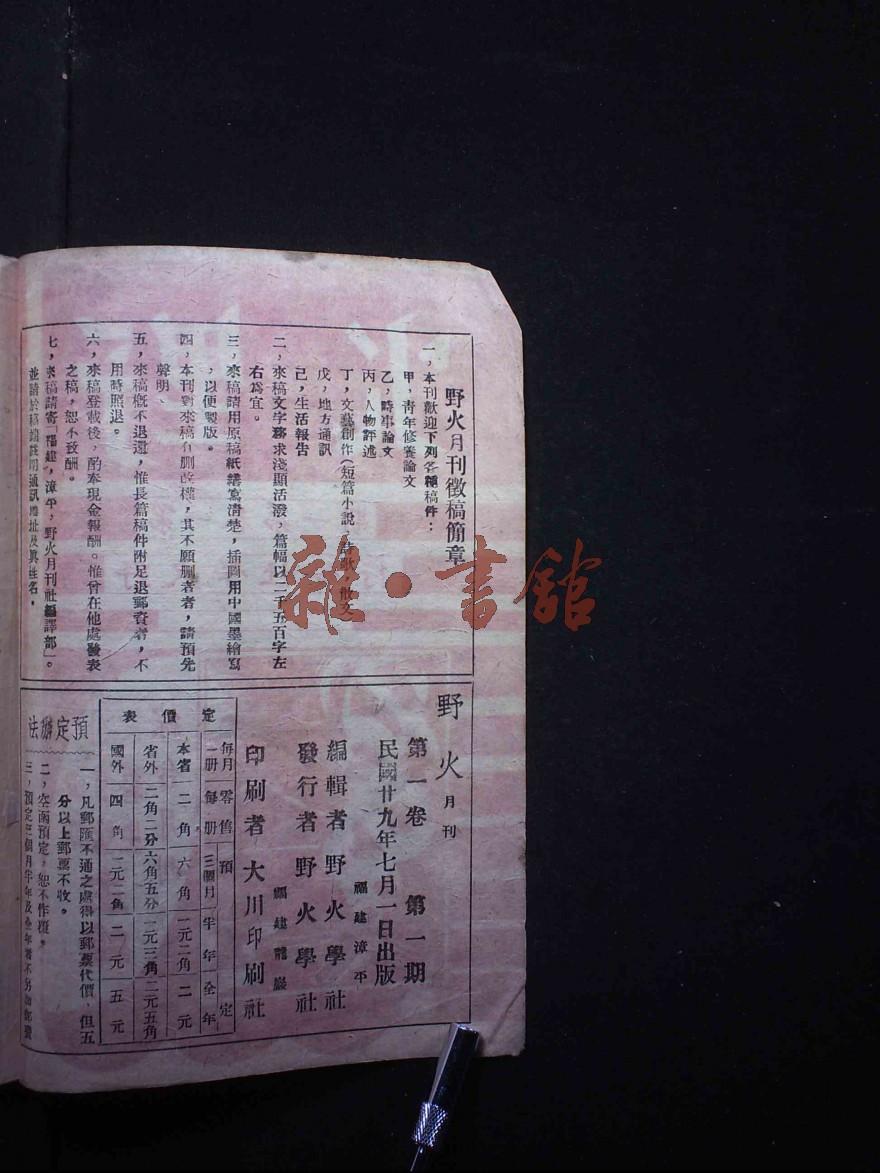 野火月刊徵稿簡章
一，本刊歡迎下列各種稿件：
甲，青年修養論文
乙，時事論文
丙，人物評述
丁，文藝創作（短篇小說，詩歌，散文
戊，地方通訊
已，生活報告
二，來稿文字務求淺顯活潑，篇幅以二千五百字左
右爲宜。
三，來稿請用原稿紙繕寫清楚，插圖用中國墨繪寫
，以便製版。
四，本刊對來稿有删改權，其不願删者，請預先
聲明、
五，來稿概不退還，惟長篇稿件附足退郵資者，不
用時照退。
六，來稿登載後，酌奉現金報酬。惟曾在他處發表
之稿，恕不致酬。
七，來稿請寄「福建，漳平，野火月刊社編譯部」。
並請於稿端註明通訊地址及眞姓名，
野火月刊
第一卷 第一期
民國廿九年七月一日出版
福建漳平
編輯者野火學社
發行者野火學社
福建龍巖
印刷者大川印刷社
定價表
每月一册 零售每册 預定 三個月 半年 全年
本省 二角 六角 一元二角 二元
省外 二角二分 六角五分 一元三角 二元五角
國外 四角 一元二角 二元 五元
預定辦法
一，凡郵匯不通之處得以郵票代價，但五
分以上郵票不收。
二，空函預定，恕不作覆。
三，預定三個月半年及全年者不另加郵費
雜·書館